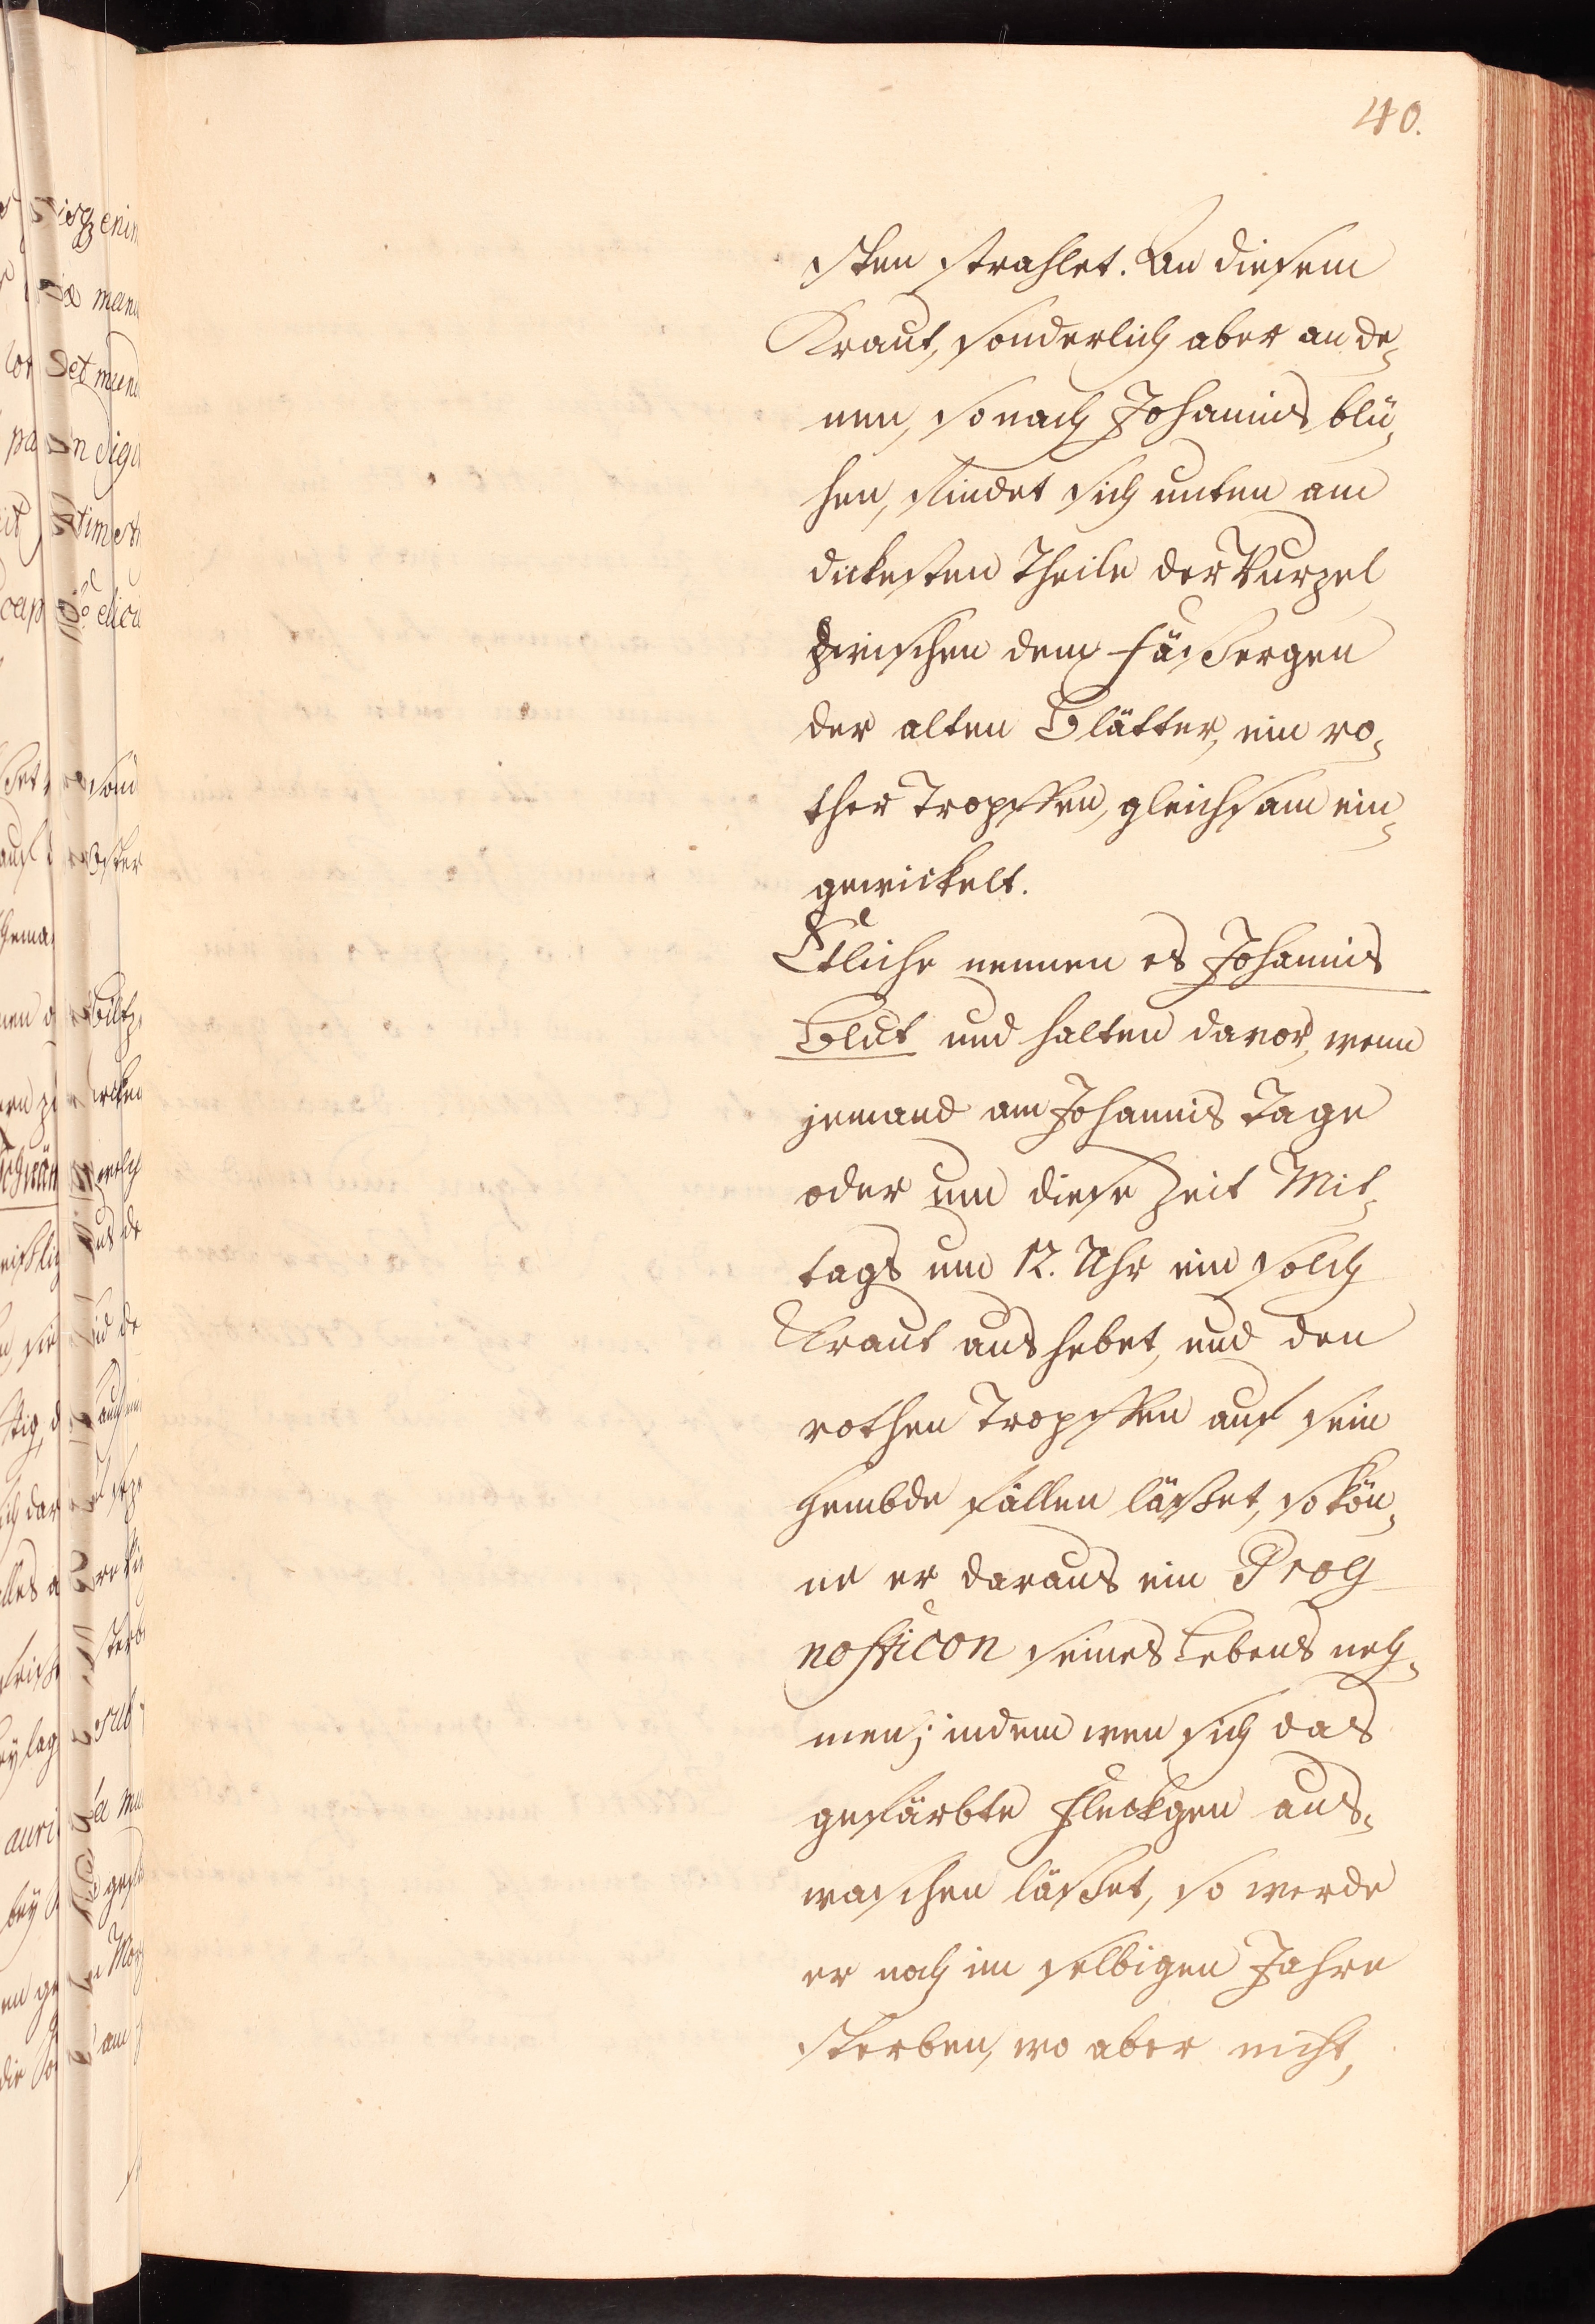 40.
sten strahlet. An diesem
Kraut, sonderlich aber an de¬
nen, so nach Johannis blü¬
hen, findet sich unten am
dickesten Theile der Wurzel
zwischen dem Fäßergen
der alten Blätter, ein ro¬
ther Tropffen, gleichsam ein¬
gewickelt.
Etliche nennen es Johannis
Blut und halten davor, wenn
jemand am Johannis Tage
oder um diese Zeit Mit¬
tags um 12. Uhr ein solch
Kraut aushebet, und den
rothen Tropffen auf sein
Hembde fallen läßet, so kön¬
ne er daraus ein Prog
nosticon seines Lebens neh¬
men; indem wen sich das
gefärbte Fleckgen aus¬
waschen läßet, so werde
er noch im selbigen Jahre
sterben, wo aber nicht,